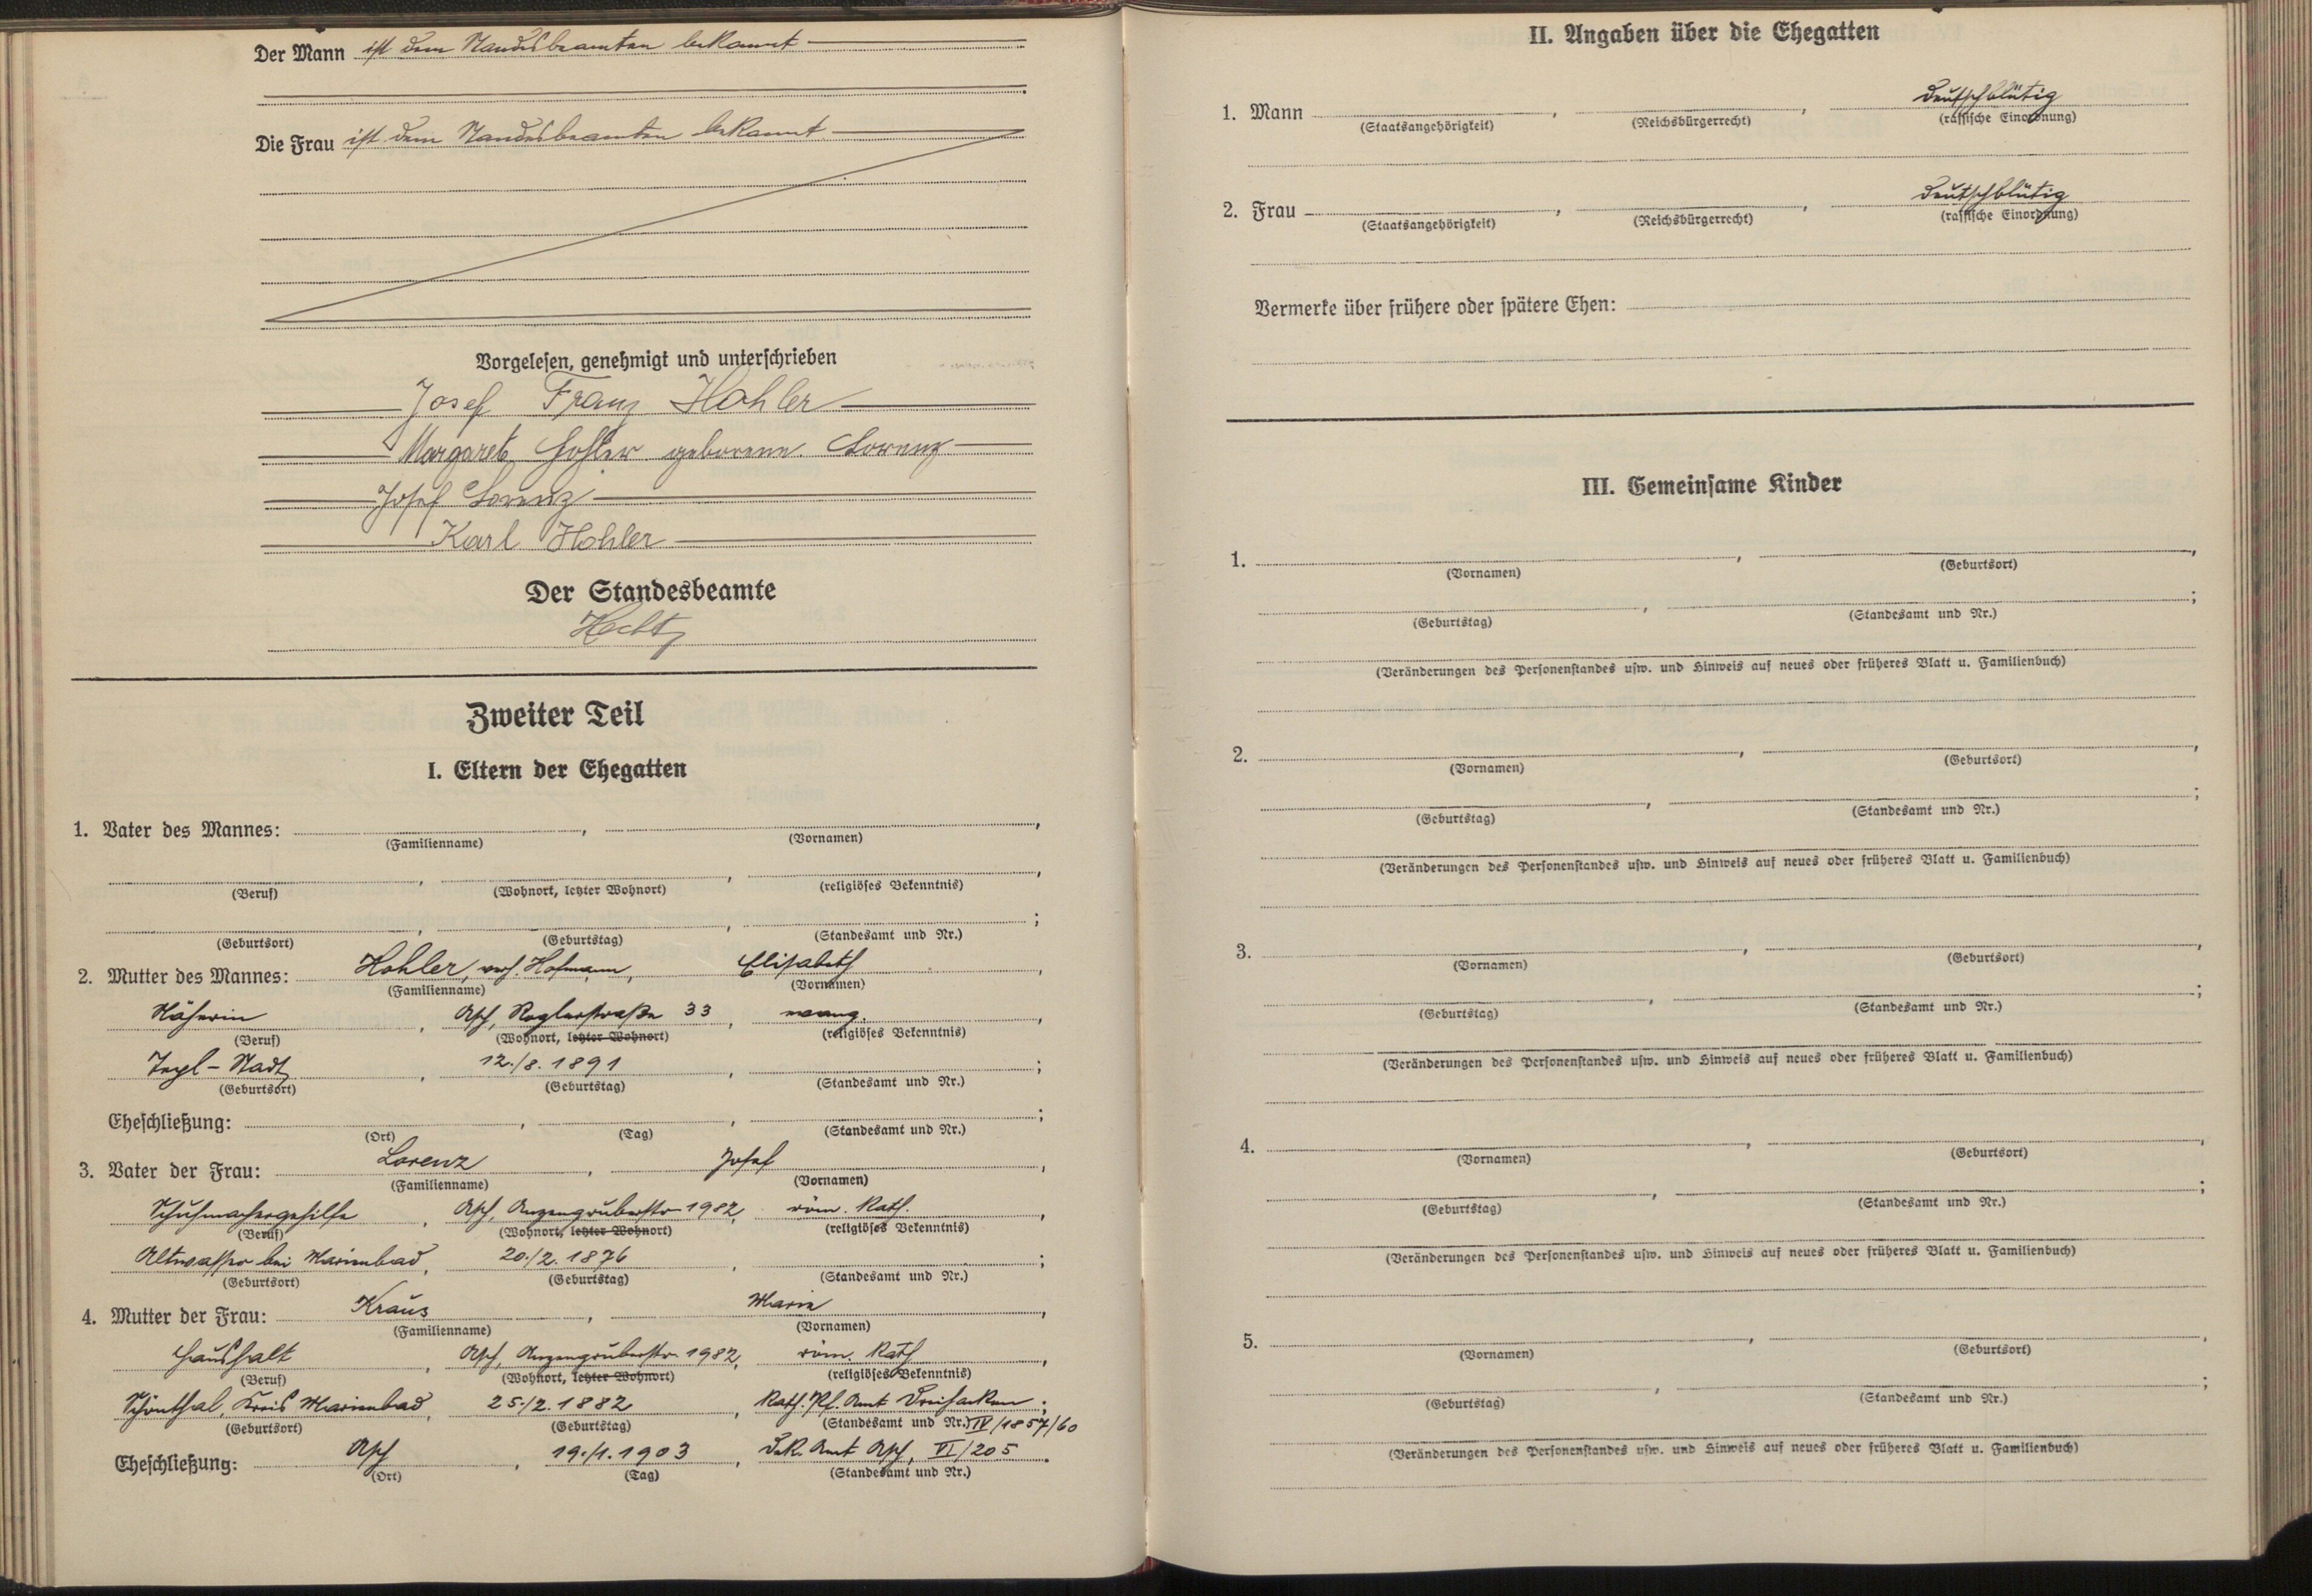 Der Mann ist dem Standesbeamten bekannt
Die Frau ist dem Standesbeamten bekannt
Vorgelesen, genehmigt und unterschrieben
Josef Franz Hohler
Margarete Hohler geborene Lorenz
Josef Lorenz
Karl Hohler
Der Standesbeamte
Zweiter Teil
I. Eltern der Ehegatten
1. Vater des Mannes: , ,
(Familienname) (Vornamen)
, , ,
(Beruf) (Wohnort, letzter Wohnort) (religiöses Bekenntnis)
, , ;
(Geburtsort) (Geburtstag) (Standesamt und Nr.)
2. Mutter des Mannes: Hohler, Hofmann, Elisabeth ,
(Familienname) (Vornamen)
Näherin , Asch, 33 , evang. ,
(Beruf) (Wohnort, letzter Wohnort) (religiöses Bekenntnis)
Stadt , 12./8. 1891 , ;
(Geburtsort) (Geburtstag) (Standesamt und Nr.)
Eheschließung: , , ;
(Ort) (Tag) (Standesamt und Nr.)
3. Vater der Frau: Lorenz , Josef ,
(Familienname) (Vornamen)
Schuhmachergehilfe , Asch, Anzengruberstr. 1982, röm. kath. ,
(Beruf) (Wohnort, letzter Wohnort) (religiöses Bekenntnis)
Altwasser bei Marienbad, 20./2. 1876 , ;
(Geburtsort) (Geburtstag) (Standesamt und Nr.)
4. Mutter der Frau: Kraus , Maria ,
(Familienname) (Vornamen)
Haushalt , Asch, Anzengruberstr. 1982, röm. kath ,
(Beruf) (Wohnort, letzter Wohnort) (religiöses Bekenntnis)
Schönthal, Kreis Marienbad, 25./2. 1882 , Kath. Pf. Amt Dreihacken ;
(Geburtsort) (Geburtstag) (Standesamt und Nr.) IV/1857/60
Eheschließung: Asch , 19./1. 1903 , Amt Asch, VI/205 .
(Ort) (Tag) (Standesamt und Nr.)
II. Angaben über die Ehegatten
1. Mann , , deutschblütig
(Staatsangehörigkeit) (Reichsbürgerrecht) (rassische Einordnung)
2. Frau , , deutschblütig
(Staatsangehörigkeit) (Reichsbürgerrecht) (rassische Einordnung)
Vermerke über frühere oder spätere Ehen:
III. Gemeinsame Kinder
1. , ,
(Vornamen) (Geburtsort)
, ;
(Geburtstag) (Standesamt und Nr.)
(Veränderungen des Personenstandes usw. und Hinweis auf neues oder früheres Blatt u. Familienbuch)
2. , ,
(Vornamen) (Geburtsort)
, ;
(Geburtstag) (Standesamt und Nr.)
(Veränderungen des Personenstandes usw. und Hinweis auf neues oder früheres Blatt u. Familienbuch)
3. , ,
(Vornamen) (Geburtsort)
, ;
(Geburtstag) (Standesamt und Nr.)
(Veränderungen des Personenstandes usw. und Hinweis auf neues oder früheres Blatt u. Familienbuch)
4. , ,
(Vornamen) (Geburtsort)
, ;
(Geburtstag) (Standesamt und Nr.)
(Veränderungen des Personenstandes usw. und Hinweis auf neues oder früheres Blatt u. Familienbuch)
5. , ,
(Vornamen) (Geburtsort)
, ;
(Geburtstag) (Standesamt und Nr.)
(Veränderungen des Personenstandes usw. und Hinweis auf neues oder früheres Blatt u. Familienbuch)